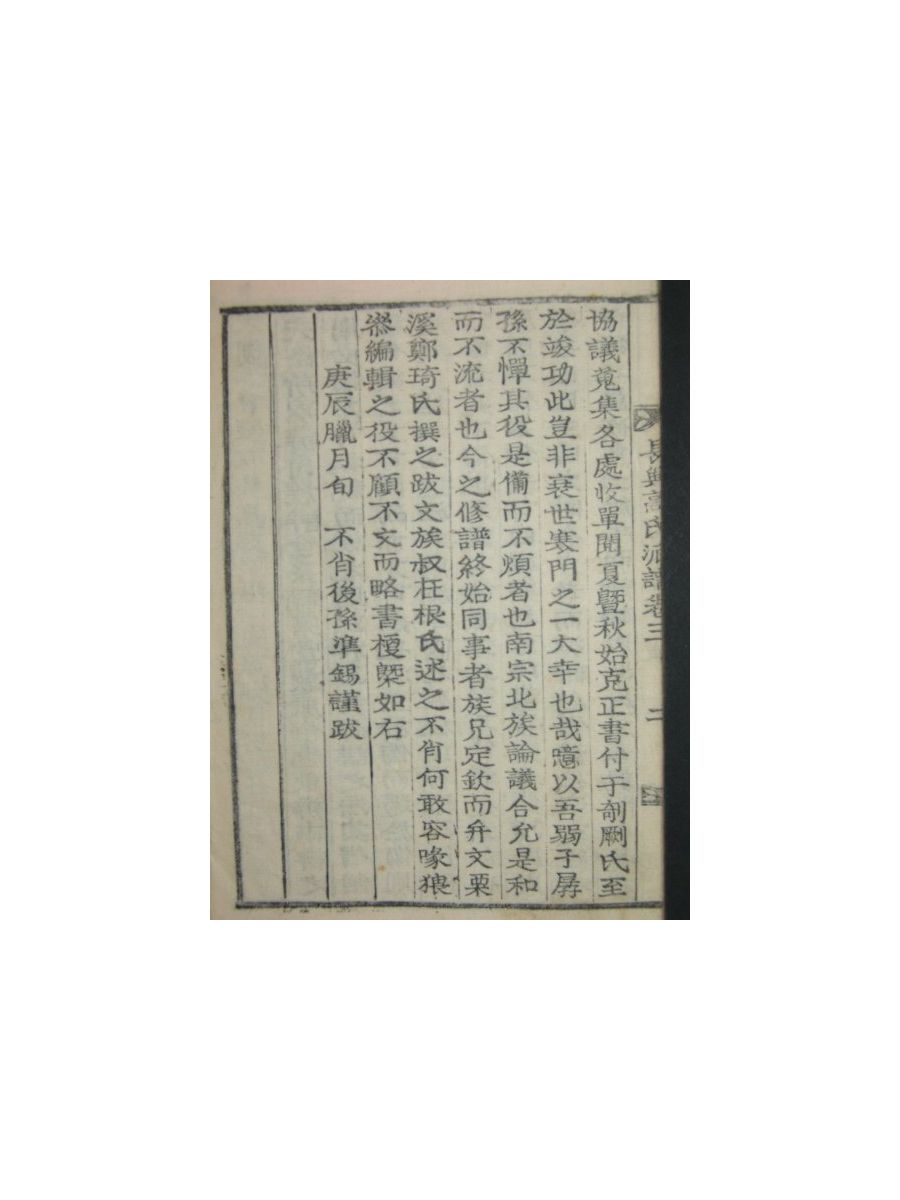 長興高氏派譜卷三 二
協議蒐集各處收單閱夏曁秋始克正書付于剞劂氏至
於竣功此豈非衰世寒門之一大幸也哉噫以吾弱子孱
孫不憚其役是備而不煩者也南宗北族論議合允是和
而不流者也今之修譜終始同事者族兄定欽而弁文栗
溪鄭琦氏撰之跋文族叔枉根氏述之不肖何敢容喙猥
叅編輯之役不顧不文而略書梗槩如右
庚辰臘月旬 不肖後孫準錫謹跋